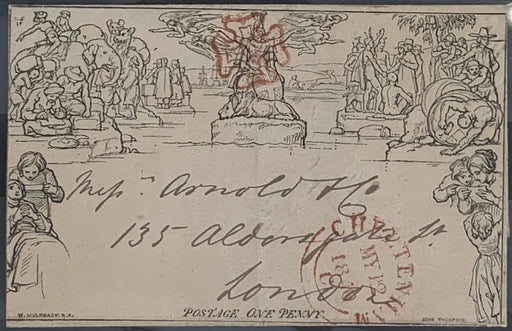 Messrs. Arnold & Co
135 Aldersgate St.
London
CHELTENHAM
MY 12
18
POSTAGE ONE PENNY.
W. MULREADY. R.A.
JOHN THOMPSON